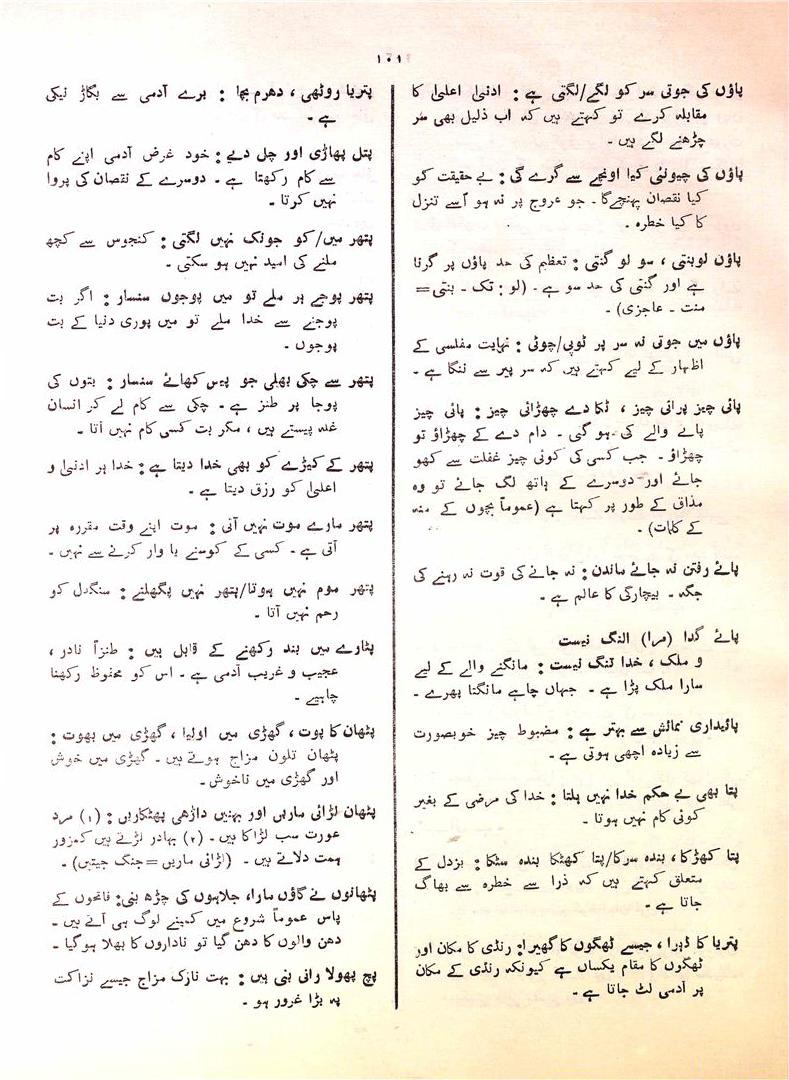 ۱۰۱
پاؤں کی جوتی سر کو لگے/لگتی ہے : ادنیٰ اعلیٰ کا
مقابلہ کرے تو کہتے ہیں کہ اب ذلیل بھی سر
چڑھنے لگے ہیں ۔
پاؤں کی چیونٹی کیا اونچے سے گرے گی : بے حقیقت کو
کیا نقصان پہنچے گا ۔ جو عروج پر نہ ہو اُسے تنزل
کا کیا خطرہ ۔
پاؤں لوبنتی ، سو لو گنتی : تعظیم کی حد پاؤں پر گرنا
ہے اور گنتی کی حد سو ہے ۔ (لو : تک ۔ بنتی =
منت ۔ عاجزی) ۔
پاؤں میں جوتی نہ سر پر ٹوپی/چوٹی : نہایت مفلسی کے
اظہار کے لیے کہتے ہیں کہ سر پیر سے ننگا ہے ۔
پائی چیز پرائی چیز ، ٹکا دے چھڑائی چیز : پائی چیز
پانے والے کی ہو گی ۔ دام دے کے چھڑاؤ تو
چھڑاؤ ۔ جب کسی کی کوئی چیز غفلت سے کھو
جائے اور دوسرے کے ہاتھ لگ جائے تو وہ
مذاق کے طور پر کہتا ہے (عموماً بچوں کے منہ
کے کلمات) ۔
پائے رفتن نہ جائے ماندن : نہ جانے کی قوت نہ رہنے کی
جگہ ۔ بیچارگی کا عالم ہے ۔
پائے گدا (مرا) النگ نیست
و ملک ، خدا تنگ نیست : مانگنے والے کے لیے
سارا ملک پڑا ہے ۔ جہاں چاہے مانگتا پھرے ۔
پائیداری نمائش سے بہتر ہے : مضبوط چیز خوبصورت
سے زیادہ اچھی ہوتی ہے ۔
پتا بھی بے حکم خدا نہیں ہلتا : خدا کی مرضی کے بغیر
کوئی کام نہیں ہوتا ۔
پتا کھڑکا ، بندہ سرکا/پتا کھٹکا بندہ سٹکا : بزدل کے
متعلق کہتے ہیں کہ ذرا سے خطرہ سے بھاگ
جاتا ہے ۔
پتریا کا ڈیرا ، جیسے ٹھگوں کا گھیرا : رنڈی کا مکان اور
ٹھگوں کا مقام یکساں ہے کیونکہ رنڈی کے مکان
پر آدمی لٹ جاتا ہے ۔
پتریا روٹھی ، دھرم بچا : برے آدمی سے بگاڑ نیکی
ہے ۔
پتل پھاڑی اور چل دیے : خود غرض آدمی اپنے کام
سے کام رکھتا ہے ۔ دوسرے کے نقصان کی پروا
نہیں کرتا ۔
پتھر میں/کو جونک نہیں لگتی : کنجوس سے کچھ
ملنے کی امید نہیں ہو سکتی ۔
پتھر پوجے ہر ملے تو میں پوجوں سنسار : اگر بت
پوجنے سے خدا ملے تو میں پوری دنیا کے بت
پوجوں ۔
پتھر سے چکی بھلی جو پیس کھائے سنسار : بتوں کی
پوجا پر طنز ہے ۔ چکی سے کام لے کر انسان
غلہ پیستے ہیں ، مگر بت کسی کام نہیں آتا ۔
پتھر کے کیڑے کو بھی خدا دیتا ہے : خدا ہر ادنیٰ و
اعلیٰ کو رزق دیتا ہے ۔
پتھر مارے موت نہیں آتی : موت اپنے وقت مقررہ پر
آتی ہے ۔ کسی کے کوسنے یا وار کرنے سے نہیں ۔
پتھر موم نہیں ہوتا/پتھر نہیں پگھلتے : سنگدل کو
رحم نہیں آتا ۔
پٹارے میں بند رکھنے کے قابل ہیں : طنزاً نادر ،
عجیب و غریب آدمی ہے ۔ اس کو محفوظ رکھنا
چاہیے ۔
پٹھان کا پوت ، گھڑی میں اولیا ، گھڑی میں بھوت :
پٹھان تلون مزاج ہوتے ہیں ۔ گھڑی میں خوش
اور گھڑی میں ناخوش ۔
پٹھان لڑائی ماریں اور بہنیں داڑھی پھٹکاریں : (۱) مرد
عورت سب لڑاکا ہیں ۔ (۲) بہادر لڑتے ہیں کمزور
ہمت دلاتے ہیں ۔ (لڑائی ماریں = جنگ جیتیں) ۔
پٹھانوں نے گاؤں مارا، جلاہوں کی چڑھ بنی : فاتحوں کے
پاس عموماً شروع میں کمینے لوگ ہی آتے ہیں ۔
دھن والوں کا دھن گیا تو ناداروں کا بھلا ہوگیا ۔
پچ پھولا رانی بنی ہیں : بہت نازک مزاج جیسے نزاکت
پہ بڑا غرور ہو ۔